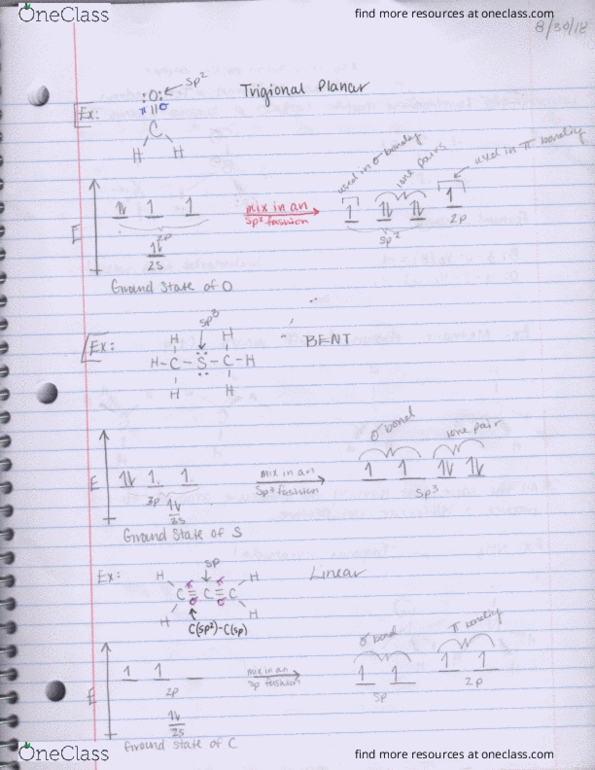 OneClass
find more resources at oneclass.com
8/30/18
Ex:
:O: ← sp²
π σ
C
H H
Trigional Planar
E
1 1
2p
2s
Ground State of O
mix in an
sp² fashion
used in σ bonding
lone pairs
used in π bonding
sp²
2p
Ex:
sp³
H H
H-C-S-C-H
H H
BENT
E
3p
3s
Ground State of S
mix in an
sp³ fashion
σ bond
lone pair
sp³
Ex:
sp
H H
C=C=C
H H
C(sp²)-C(sp)
Linear
E
2p
2s
Ground State of C
mix in an
sp fashion
σ bond
π bonding
sp
2p
OneClass
find more resources at oneclass.com